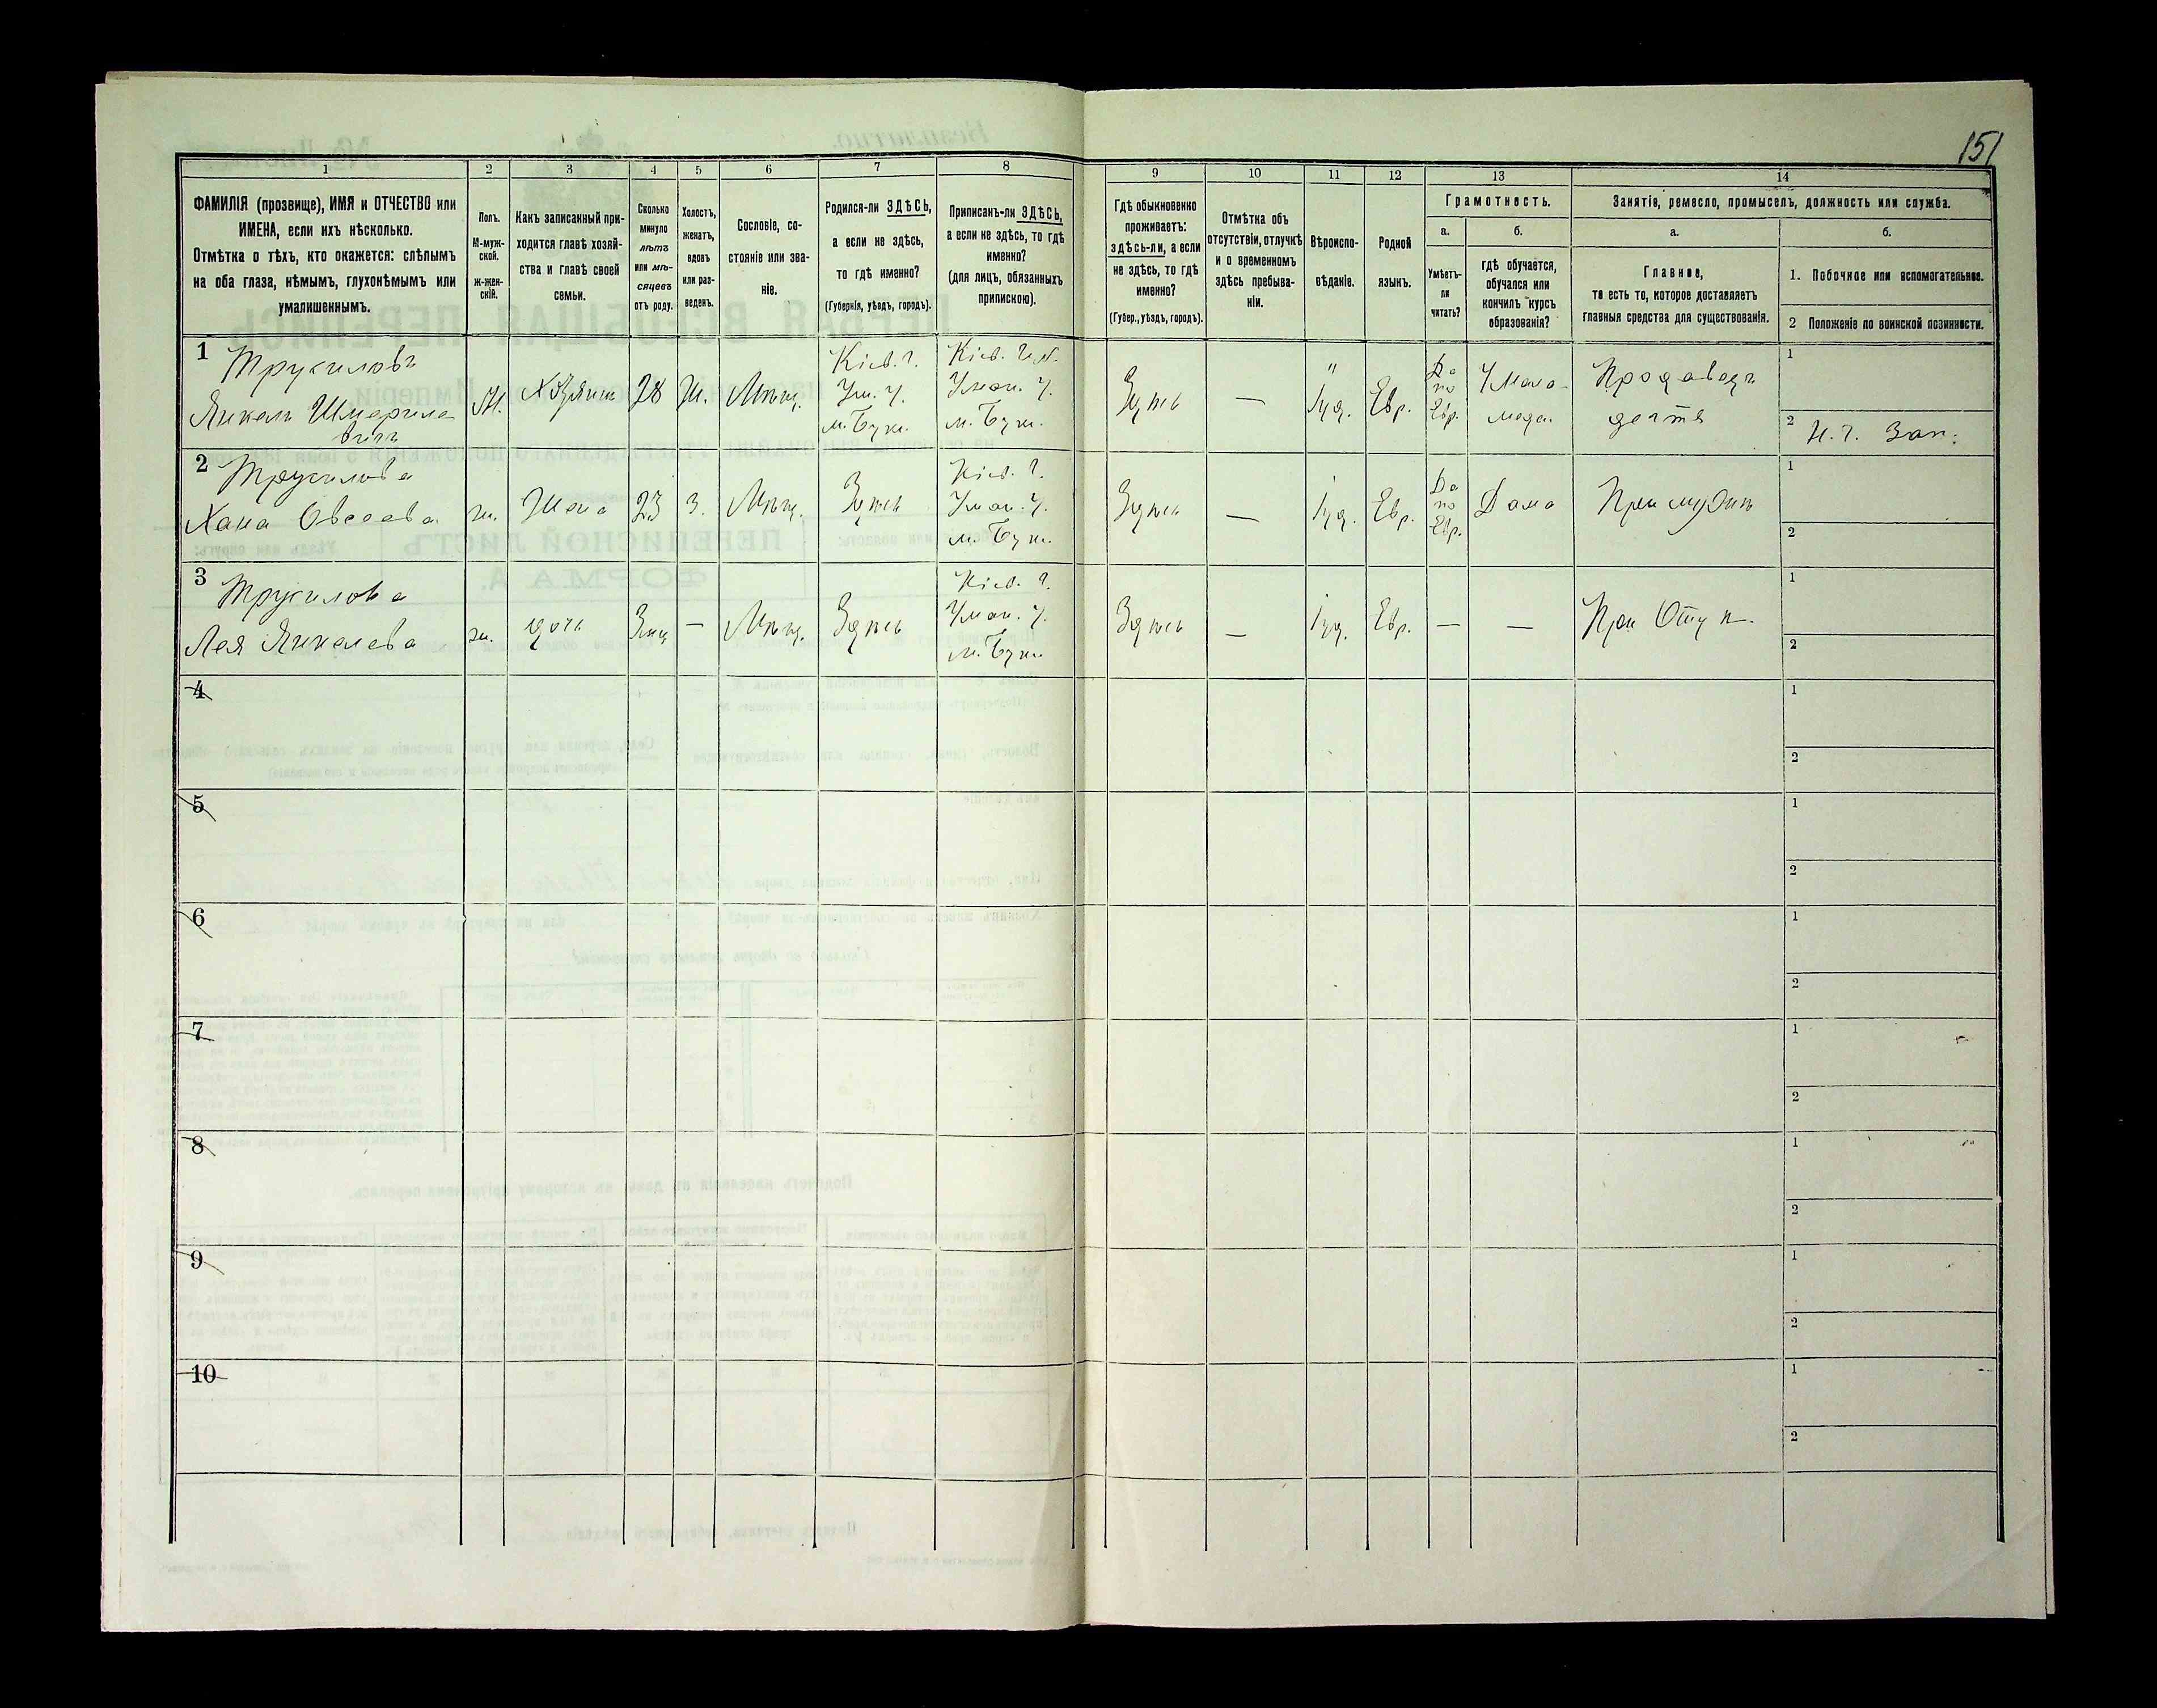 151
1
2
3
4
5
6
7
8
9
10
11
12
13
14
ФАМИЛІЯ (прозвище), ИМЯ и ОТЧЕСТВО или
ИМЕНА, если ихъ нѣсколько.
Отмѣтка о тѣхъ, кто окажется: слѣпымъ
на оба глаза, нѣмымъ, глухонѣмымъ или
умалишеннымъ.
Полъ.
М-муж-
ской.
ж-жен-
скій.
Какъ записанный при-
ходится главѣ хозяй-
ства и главѣ своей
семьи.
Сколько
минуло
лѣтъ
или мѣ-
сяцевъ
отъ роду.
Холостъ,
женатъ,
вдовъ
или раз-
веденъ.
Сословіе, со-
стояніе или зва-
ніе.
Родился-ли ЗДѢСЬ,
а если не здѣсь,
то гдѣ именно?
(Губернія, уѣздъ, городъ).
Приписанъ-ли ЗДѢСЬ,
а если не здѣсь, то гдѣ
именно?
(для лицъ, обязанныхъ
припискою).
Гдѣ обыкновенно
проживаетъ:
здѣсь-ли, а если
не здѣсь, то гдѣ
именно?
(Губер., уѣздъ, городъ).
Отмѣтка объ
отсутствіи, отлучкѣ
и о временномъ
здѣсь пребыва-
ніи.
Вѣроиспо-
вѣданіе.
Родной
языкъ.
Грамотность.
а.
б.
Умѣетъ-
ли
читать?
гдѣ обучается,
обучался или
кончилъ курсъ
образованія?
Занятіе, ремесло, промыселъ, должность или служба.
а.
б.
Главное,
то есть то, которое доставляетъ
главныя средства для существованія.
1. Побочное или вспомогательное.
2 Положеніе по воинской повинности.
1
Трусиловъ
Янкель Шмерило
вичъ
М.
Хозяинъ
28
Ж.
Мѣщ.
Кіев. г.
Ум. У.
м. Буки.
Кіев. Г.
Уман. У.
м. Буки.
Здѣсь
—
Іуд.
Евр.
Да
по
Евр.
У Мела-
меда.
Продавецъ
дегтя
1
2 Н. г. Зап.
2
Трусилова
Хана Овсеева
ж.
Жена
23
З.
Мѣщ.
Здѣсь
Кіев. Г.
Уман. У.
м. Буки.
Здѣсь
—
Іуд.
Евр.
Да
по
Евр.
Дома
При мужѣ
1
2
3
Трусилова
Лея Янкелева
ж.
дочь
—
Мѣщ.
Здѣсь
Кіев. Г.
Уман. У.
м. Буки
Здѣсь
—
Іуд.
Евр.
—
—
При Отцѣ.
1
2
4
1
2
5
1
2
6
1
2
7
1
2
8
1
2
9
1
2
10
1
2